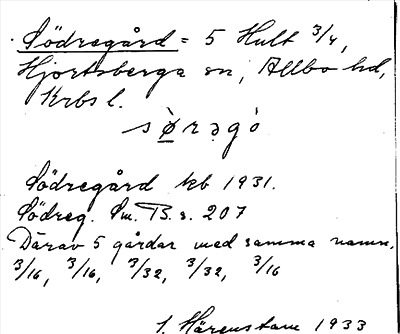 Södregård = 5 Hult 3/4,
Hjortsberga sn, Allbo hd,
Krbs l.
sø̀rəgò
Södregård kb 1931.
Södreg. Sm. B. s. 207
Därav 5 gårdar med samma namn,
3/16, 3/16, 3/32, 3/32, 3/16
1933